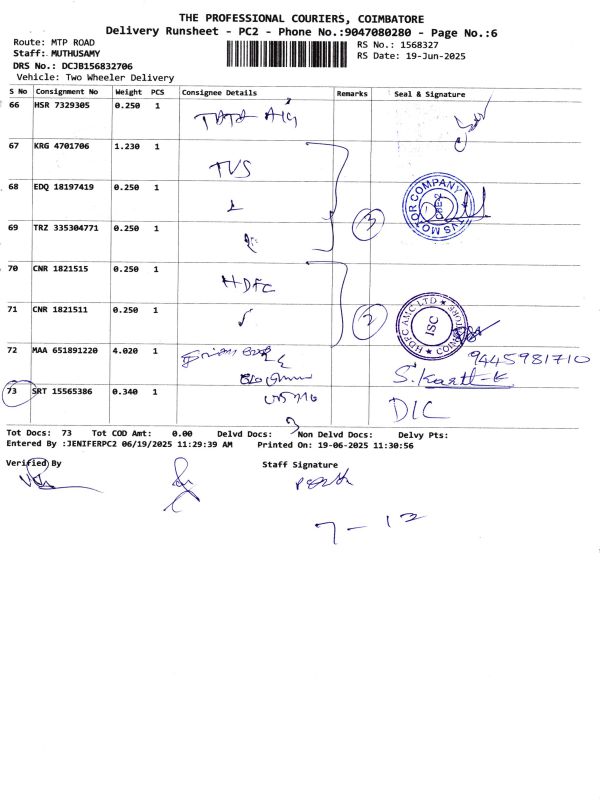 THE PROFESSIONAL COURIERS, COIMBATORE
Delivery Runsheet - PC2 - Phone No.:9047080280 - Page No.:6
Route: MTP ROAD
RS No.: 1568327
Staff: MUTHUSAMY
RS Date: 19-Jun-2025
DRS No.: DCJB156832706
Vehicle: Two Wheeler Delivery
S No Consignment No Weight PCS Consignee Details Remarks Seal & Signature
66 HSR 7329305 0.250 1 TATA AIG
67 KRG 4701706 1.230 1 TVS
68 EDQ 18197419 0.250 1
TVS MOTOR COMPANY
69 TRZ 335304771 0.250 1
3
70 CNR 1821515 0.250 1 HDFC
71 CNR 1821511 0.250 1
2
HDFC AMC LTD ★ ISC
72 MAA 651891220 4.020 1
9445981710
S. Karthik
73 SRT 15565386 0.340 1
DIC
Tot Docs: 73 Tot COD Amt: 0.00 Delvd Docs: Non Delvd Docs: Delvy Pts:
Entered By :JENIFERPC2 06/19/2025 11:29:39 AM Printed On: 19-06-2025 11:30:56
Verified By Staff Signature
7-12